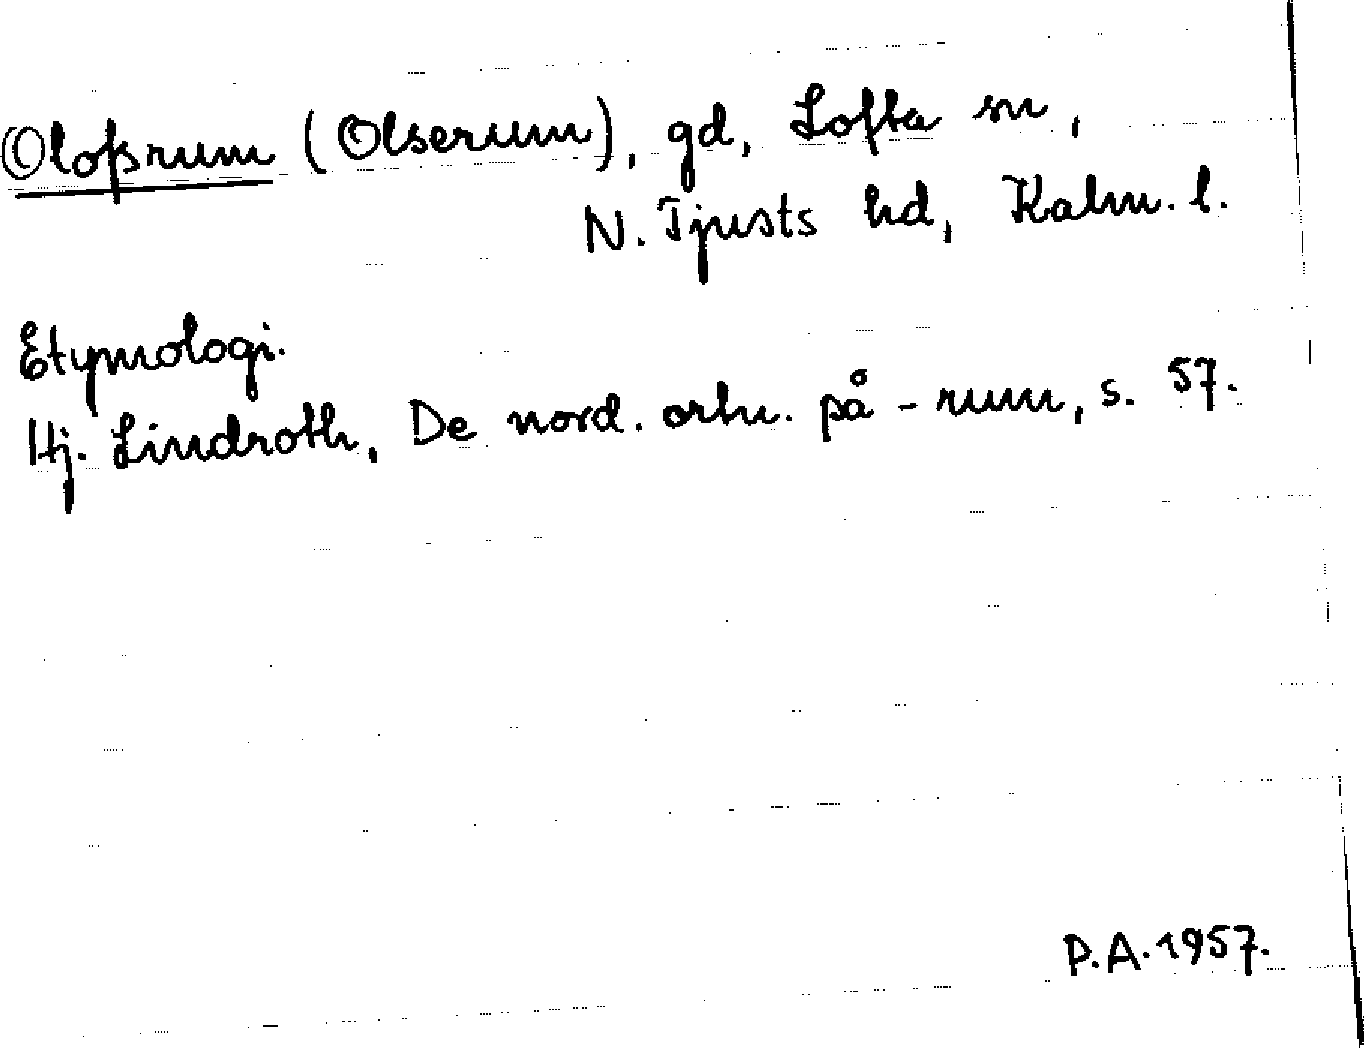 Olofsrum (Olserum), gd, Lofta sn,
N. Tjusts hd, Kalm. l.
Etymologi.
Hj. Lindroth, De nord. ortn. på -rum, s. 57.
P.A. 1957.